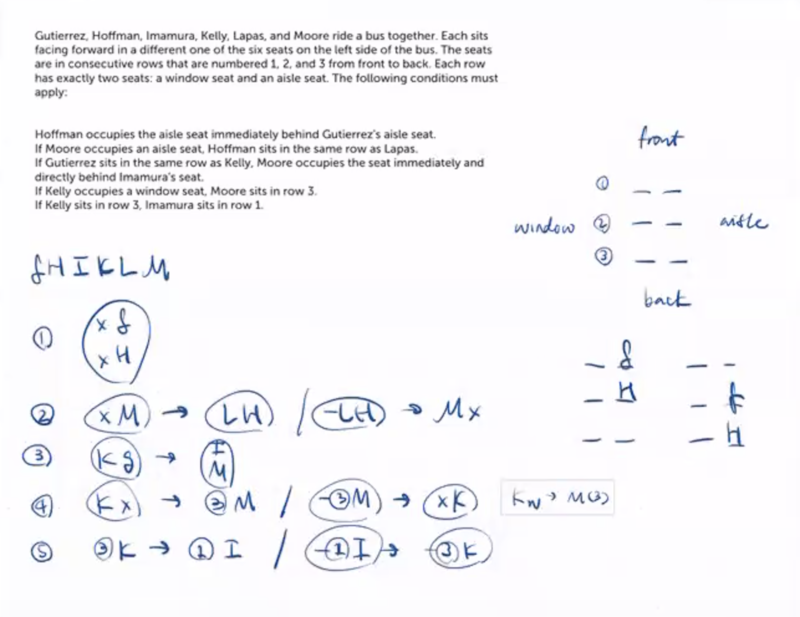 Gutierrez, Hoffman, Imamura, Kelly, Lapas, and Moore ride a bus together. Each sits
facing forward in a different one of the six seats on the left side of the bus. The seats
are in consecutive rows that are numbered 1, 2, and 3 from front to back. Each row
has exactly two seats: a window seat and an aisle seat. The following conditions must
apply:
Hoffman occupies the aisle seat immediately behind Gutierrez's aisle seat.
If Moore occupies an aisle seat, Hoffman sits in the same row as Lapas.
If Gutierrez sits in the same row as Kelly, Moore occupies the seat immediately and
directly behind Imamura's seat.
If Kelly occupies a window seat, Moore sits in row 3.
If Kelly sits in row 3, Imamura sits in row 1.
front
① _ _
window ② _ _ aisle
③ _ _
back
G H I K L M
① x G
x H
② x M → L H / -LH → M x
③ K G → I
M
④ K x → ③ M / -③ M → x K
K w → M(3)
⑤ ③ K → ① I / -① I → -③ K
_ G
_ H
_ _
_ _
_ G
_ H